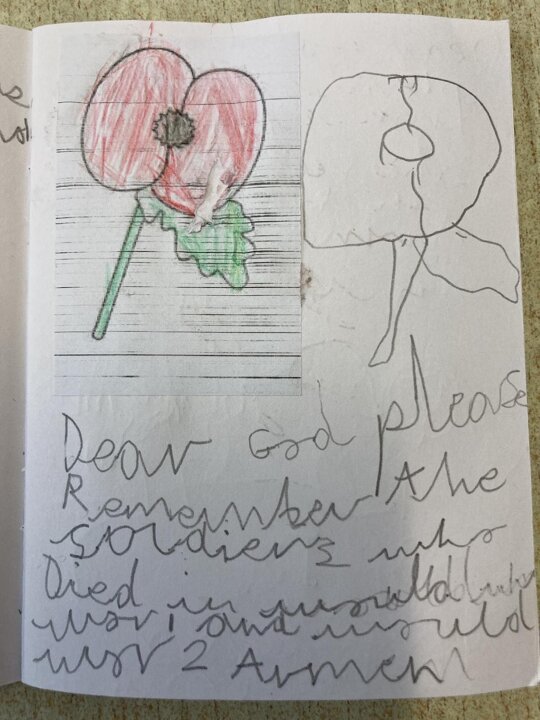 Dear God please
Remember the
soldiers who
Died in would
war 1 and would
war 2 Armen